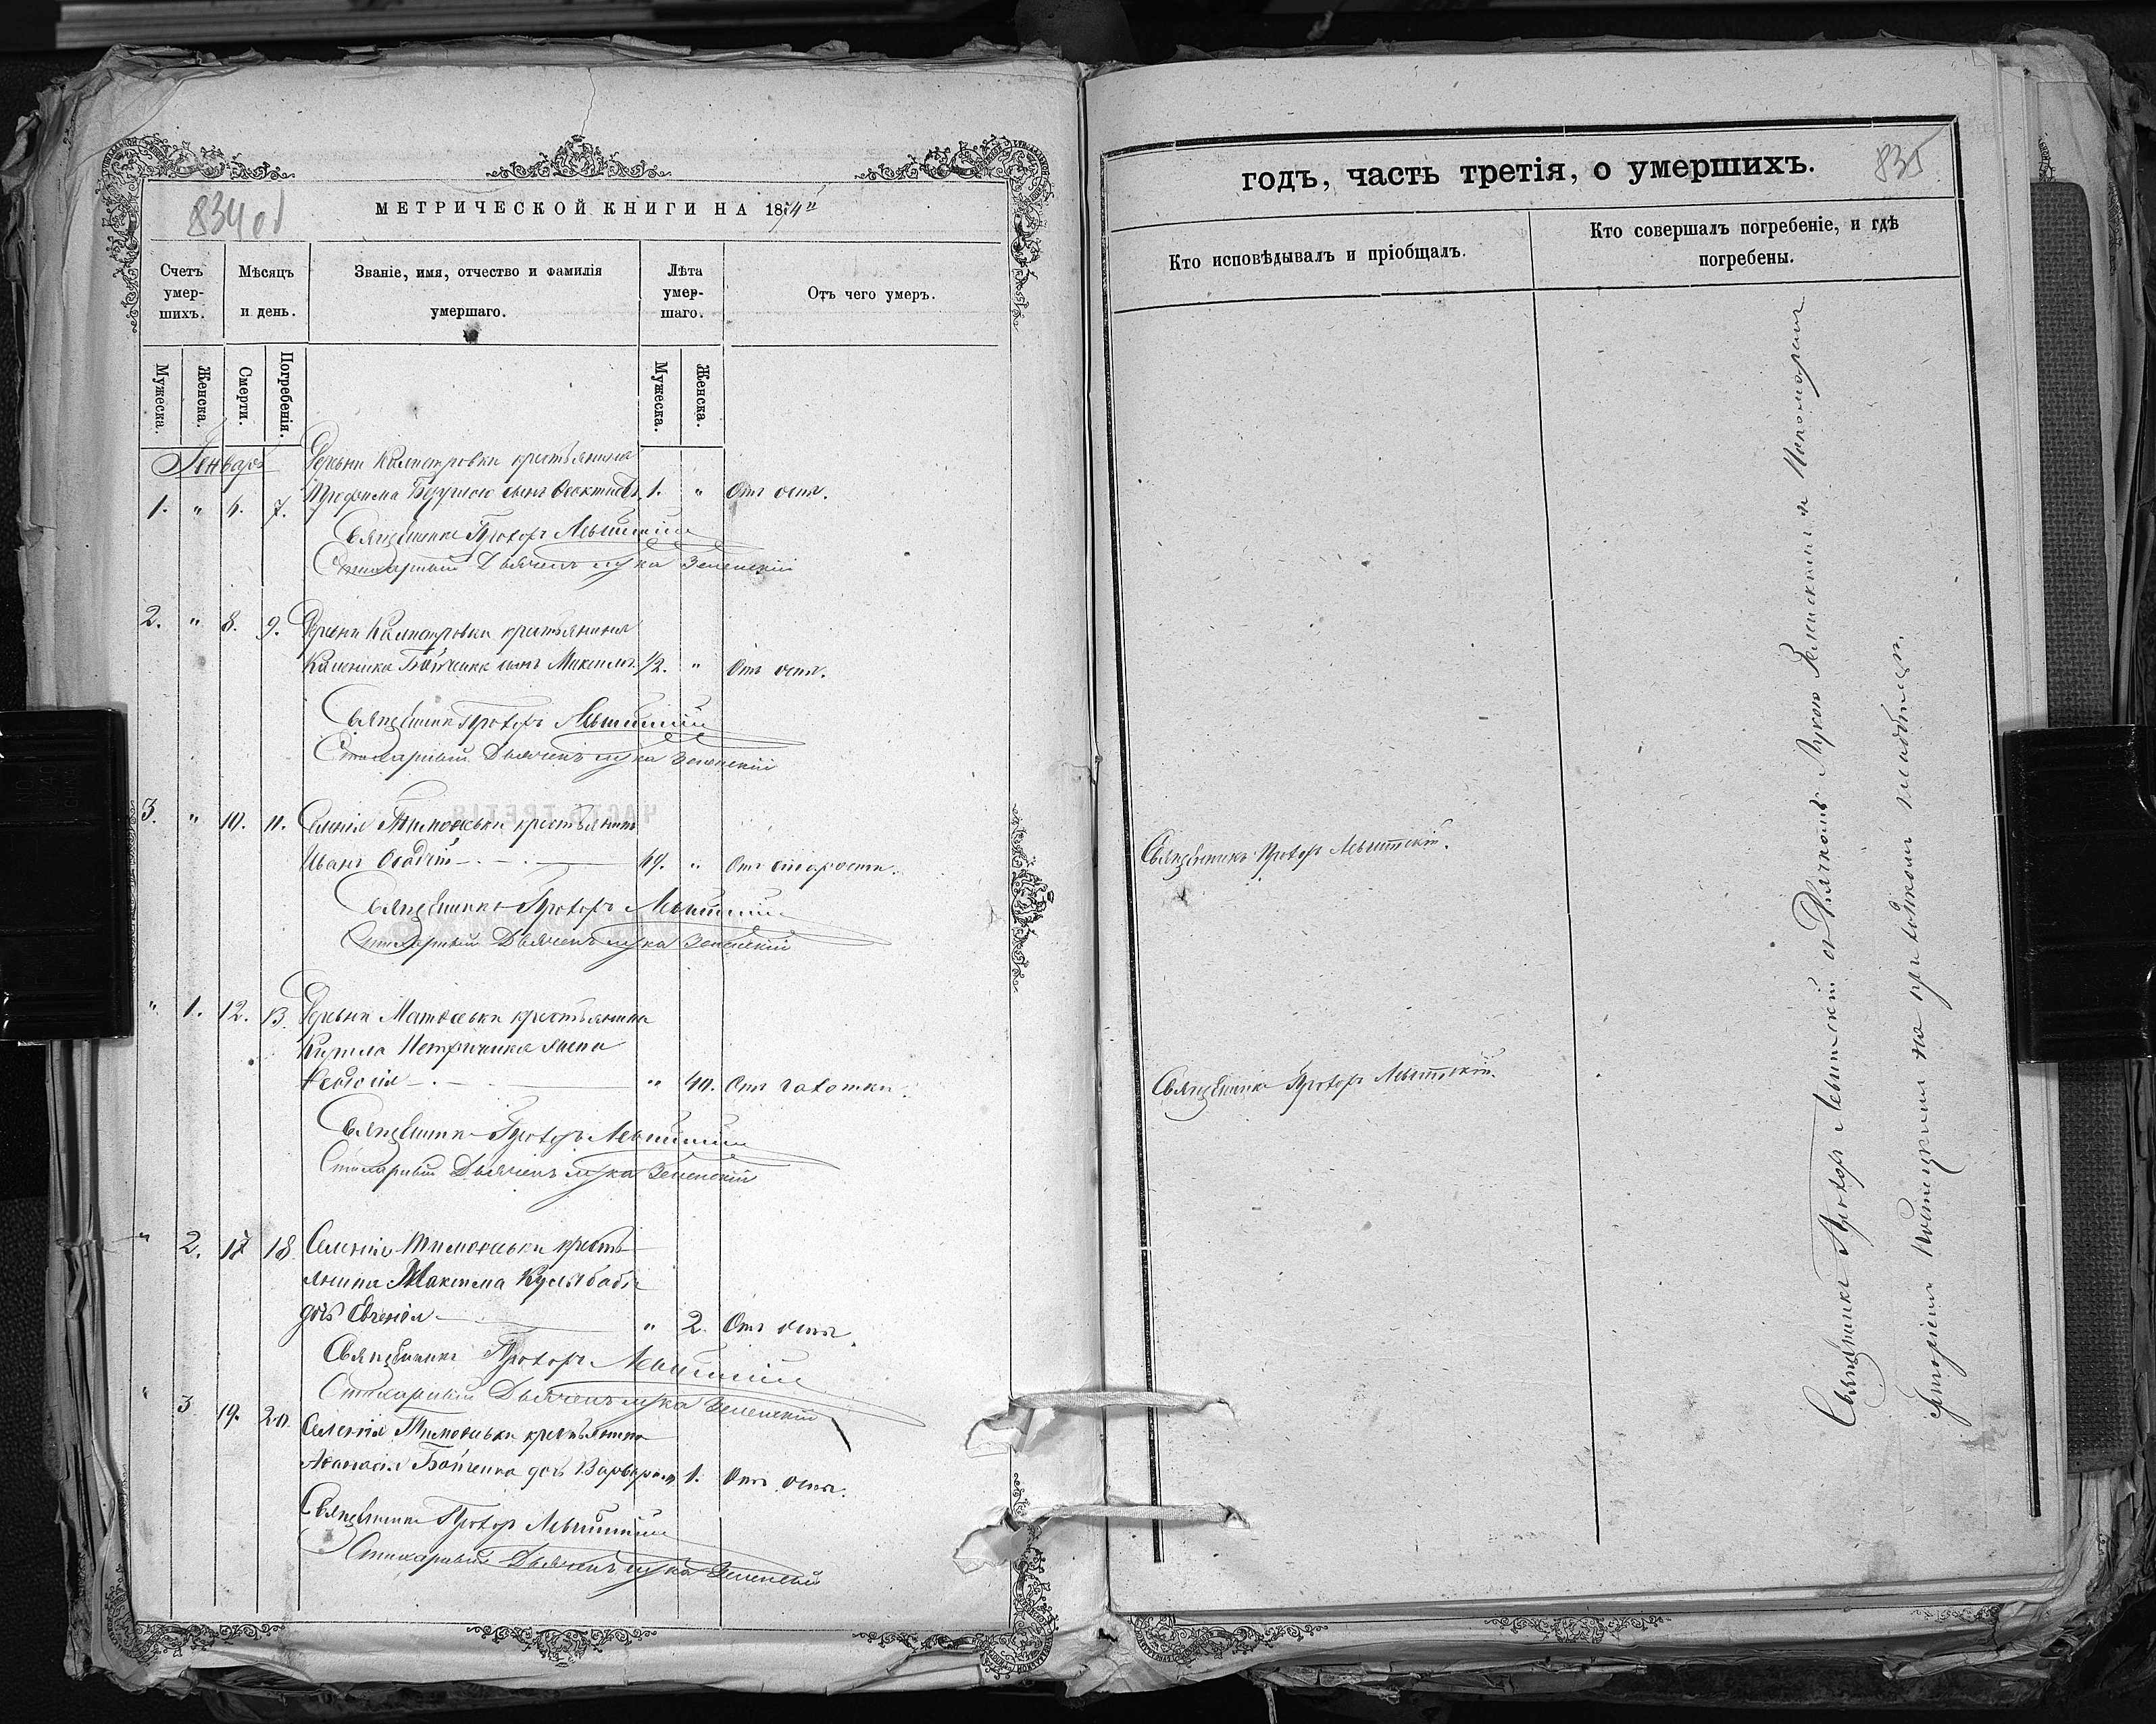 834 об
МЕТРИЧЕСКОЙ КНИГИ НА 1874й
Счетъ умер-шихъ.
Мѣсяцъ и день.
Званіе, имя, отчество и фамилія умершаго.
Лѣта умер-шаго.
Отъ чего умеръ.
Мужеска.
Женска.
Смерти.
Погребенія.
Мужеска.
Женска.
Январь
Деревни Калистровки крестьянина
1. " 6. 7. Трофима сынъ Феоктистъ 1. " Отъ оспы.
Священникъ Прохоръ
Стихарный Дьячекъ Лука Зеленскій
2. " 8. 9. Деревни Калистровки крестьянина
Каленика Бойченка сынъ Максимъ 1/2. " Отъ оспы.
Священникъ Прохоръ
Стихарный Дьячекъ Лука Зеленскій
3. " 10. 11. Селенія крестьянинъ
Иванъ Осадчій 49. " Отъ старости.
Священникъ Прохоръ
Стихарный Дьячекъ Лука Зеленскій
" 1. 12. 13. Деревни крестьянина
Кирила жена
Феодосія " 40. Отъ чахотки.
Священникъ Прохоръ
Стихарный Дьячекъ Лука Зеленскій
" 2. 17 18. Селенія кресть-
янина Максима Кулябабы
дочь Евгенія " 2. Отъ оспы.
Священникъ Прохоръ
Стихарный Дьячекъ Лука Зеленскій
" 3 19. 20. Селенія крестьянина
Афанасія Бойченка дочь Варвара " 1. Отъ оспы.
Священникъ Прохоръ
Стихарный Дьячекъ Лука Зеленскій
годъ, часть третія, о умершихъ.
835
Кто исповѣдывалъ и пріобщалъ.
Кто совершалъ погребеніе, и гдѣ
погребены.
Священникъ Прохоръ
Священникъ Прохоръ
Священникъ Прохоръ съ Дьячкомъ Лукою Зеленскимъ и Пономаремъ
Григоріемъ на приходскомъ кладбищѣ.